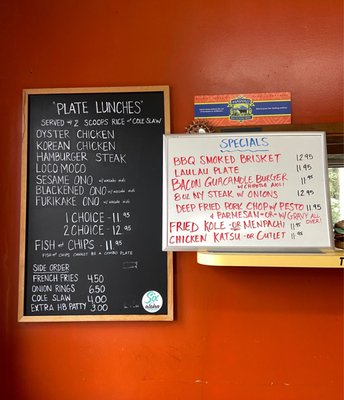 "PLATE LUNCHES"
SERVED w/ 2 SCOOPS RICE and COLE SLAW
OYSTER CHICKEN
KOREAN CHICKEN
HAMBURGER STEAK
LOCO MOCO
SESAME ONO w/ wasabi aioli
BLACKENED ONO w/ wasabi aioli
FURIKAKE ONO w/ wasabi aioli
1 CHOICE - 11.95
2 CHOICE - 12.95
FISH and CHIPS - 11.95
FISH and CHIPS CANNOT BE A COMBO PLATE
SIDE ORDER
FRENCH FRIES 4.50
ONION RINGS 6.50
COLE SLAW 4.00
EXTRA HB PATTY 3.00
SPECIALS
BBQ SMOKED BRISKET 12.95
LAULAU PLATE 11.95
BACON GUACAMOLE BURGER 11.95
w/ CHIPOTLE AIOLI
8 oz NY STEAK w/ ONIONS 12.95
DEEP FRIED PORK CHOP w/ PESTO 11.95
+ PARMESAN -OR- w/ GRAVY ALL OVER!
FRIED KOLE -OR MENPACHI 11.95
CHICKEN KATSU -OR CUTLET 11.95